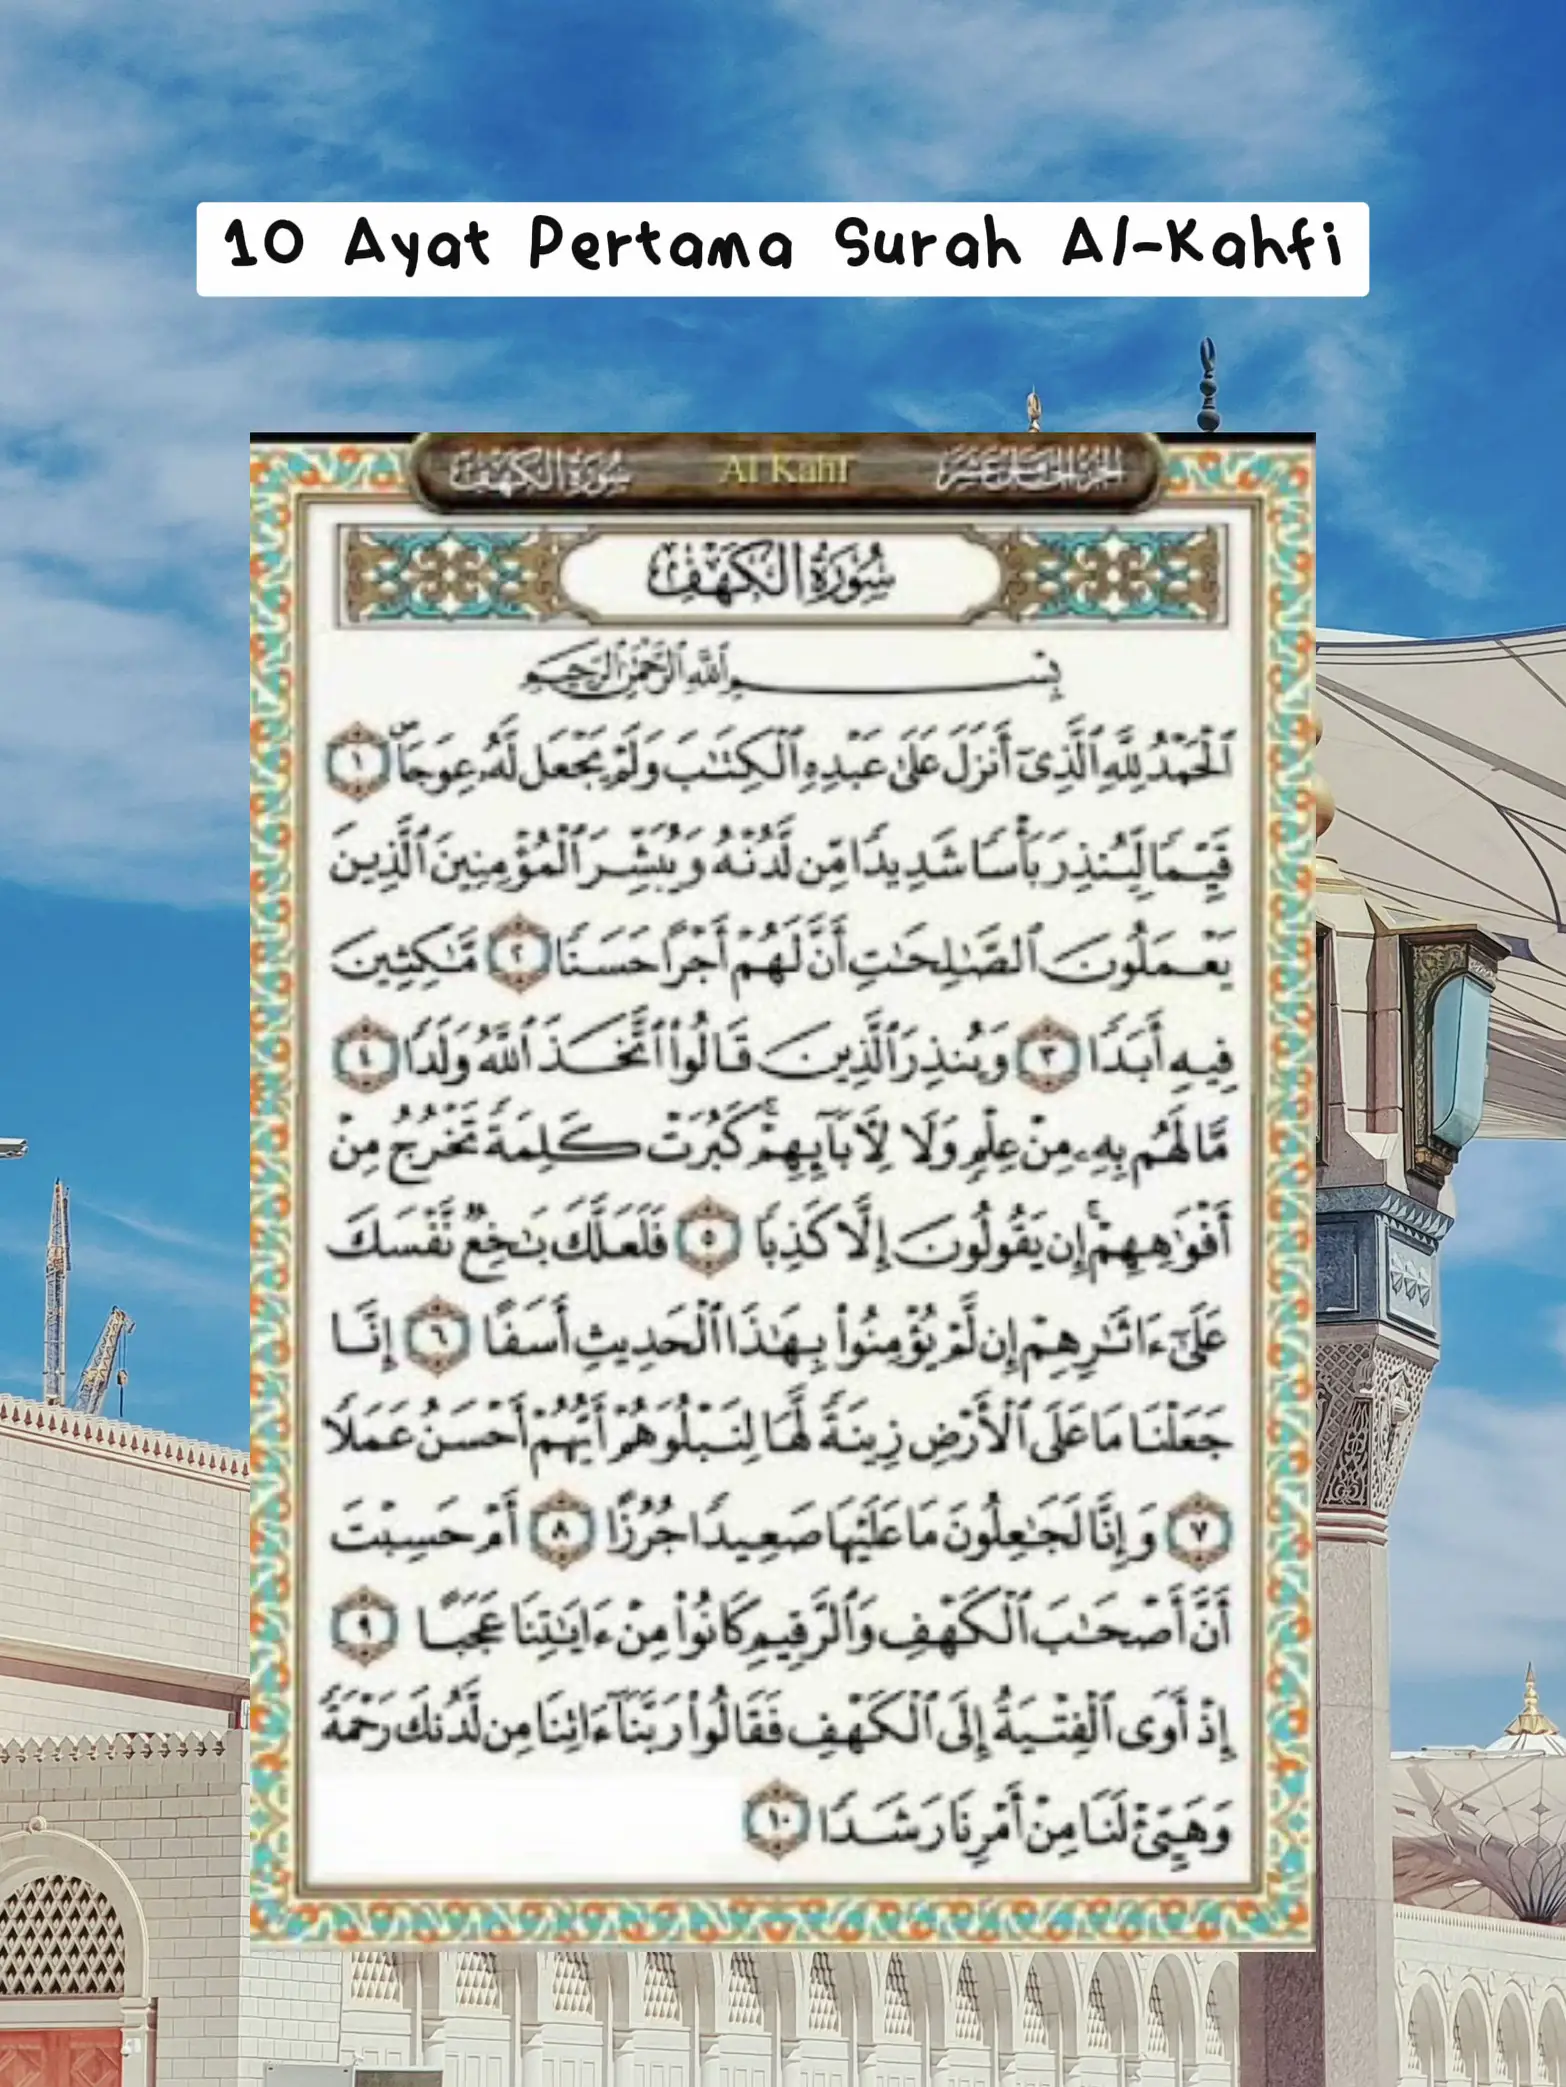 10 Ayat Pertama Surah Al-Kahfi
سُورَةُ الكَهْفِ Al Kahf الجزء الخامس عشر
سُورَةُ الكَهْفِ
بِسْمِ ٱللَّهِ ٱلرَّحْمَٰنِ ٱلرَّحِيمِ
ٱلْحَمْدُ لِلَّهِ ٱلَّذِىٓ أَنزَلَ عَلَىٰ عَبْدِهِ ٱلْكِتَٰبَ وَلَمْ يَجْعَل لَّهُۥ عِوَجَاۜ ١
قَيِّمًا لِّيُنذِرَ بَأْسًا شَدِيدًا مِّن لَّدُنْهُ وَيُبَشِّرَ ٱلْمُؤْمِنِينَ ٱلَّذِينَ
يَعْمَلُونَ ٱلصَّٰلِحَٰتِ أَنَّ لَهُمْ أَجْرًا حَسَنًا ٢ مَّٰكِثِينَ
فِيهِ أَبَدًا ٣ وَيُنذِرَ ٱلَّذِينَ قَالُوا۟ ٱتَّخَذَ ٱللَّهُ وَلَدًا ٤
مَّا لَهُم بِهِۦ مِنْ عِلْمٍ وَلَا لِـَٔابَآئِهِمْ ۚ كَبُرَتْ كَلِمَةً تَخْرُجُ مِنْ
أَفْوَٰهِهِمْ ۚ إِن يَقُولُونَ إِلَّا كَذِبًا ٥ فَلَعَلَّكَ بَٰخِعٌ نَّفْسَكَ
عَلَىٰٓ ءَاثَٰرِهِمْ إِن لَّمْ يُؤْمِنُوا۟ بِهَٰذَا ٱلْحَدِيثِ أَسَفًا ٦ إِنَّا
جَعَلْنَا مَا عَلَى ٱلْأَرْضِ زِينَةً لَّهَا لِنَبْلُوَهُمْ أَيُّهُمْ أَحْسَنُ عَمَلًا
٧ وَإِنَّا لَجَٰعِلُونَ مَا عَلَيْهَا صَعِيدًا جُرُزًا ٨ أَمْ حَسِبْتَ
أَنَّ أَصْحَٰبَ ٱلْكَهْفِ وَٱلرَّقِيمِ كَانُوا۟ مِنْ ءَايَٰتِنَا عَجَبًا ٩
إِذْ أَوَى ٱلْفِتْيَةُ إِلَى ٱلْكَهْفِ فَقَالُوا۟ رَبَّنَآ ءَاتِنَا مِن لَّدُنكَ رَحْمَةً
وَهَيِّئْ لَنَا مِنْ أَمْرِنَا رَشَدًا ١٠